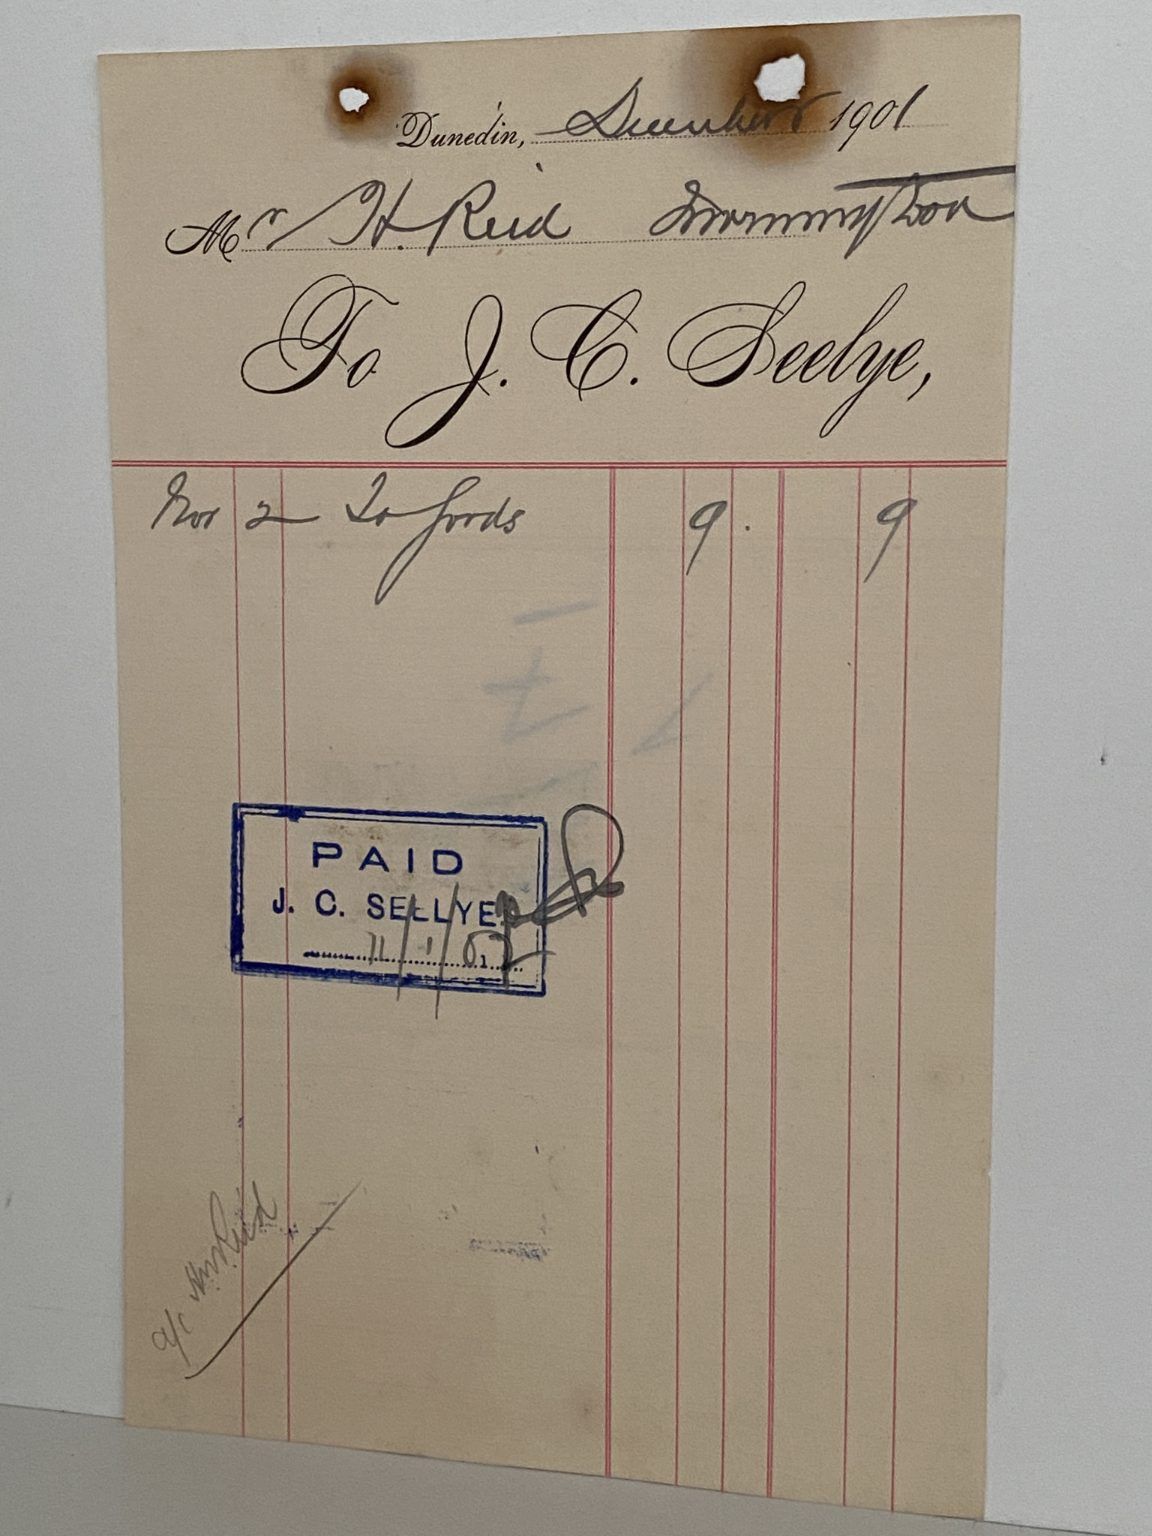 Dunedin, December 1901
Mr H. Reid Mornington
To J. C. Seelye,
Nov 2 To goods 9. 9
PAID
J. C. SELLYE
11/1/02
a/c Reid